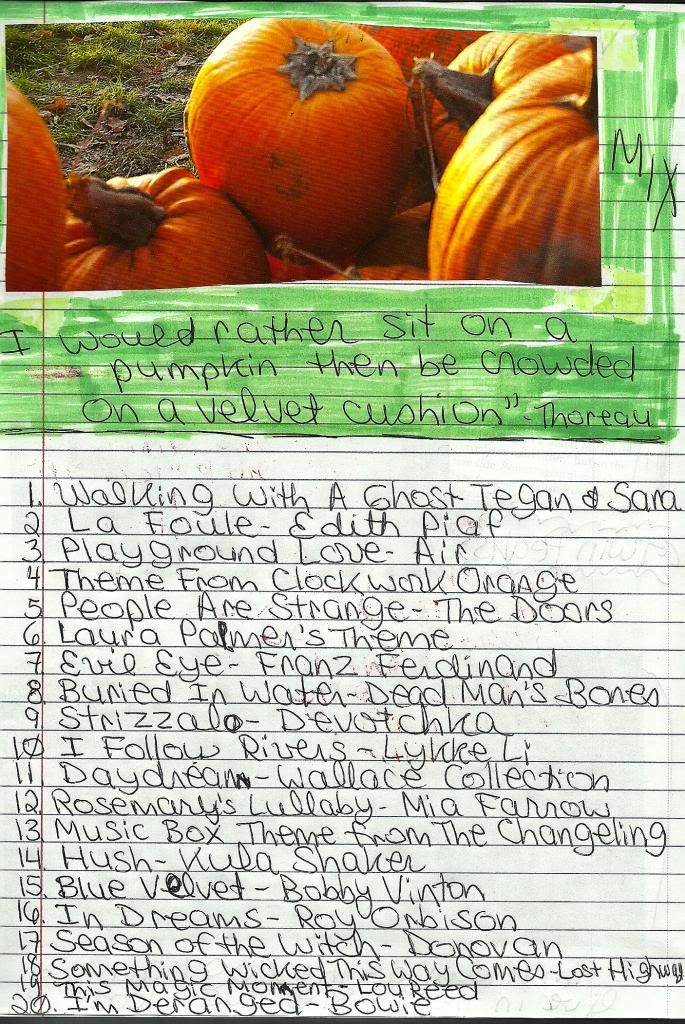 MIX
I would rather sit on a
pumpkin then be crowded
on a velvet cushion" - Thoreau
1. Walking With A Ghost- Tegan & Sara
2. La Foule- Edith Piaf
3. Playground Love- Air
4 Theme From Clockwork Orange
5 People Are Strange- The Doors
6. Laura Palmer's Theme
7 Evil Eye- Franz Ferdinand
8. Buried In Water- Dead Man's Bones
9 Strizzalo- Devotchka
10 I Follow Rivers - Lykke Li
11 Daydream - Wallace Collection
12. Rosemary's Lullaby- Mia Farrow
13 Music Box Theme from The Changeling
14 Hush- Kula Shaker
15. Blue Velvet - Bobby Vinton
16. In Dreams - Roy Orbison
17 Season of the Witch - Donovan
18 Something Wicked This Way Comes - Lost Highway
19 This Magic Moment - Lou Reed
20. I'm Deranged - Bowie